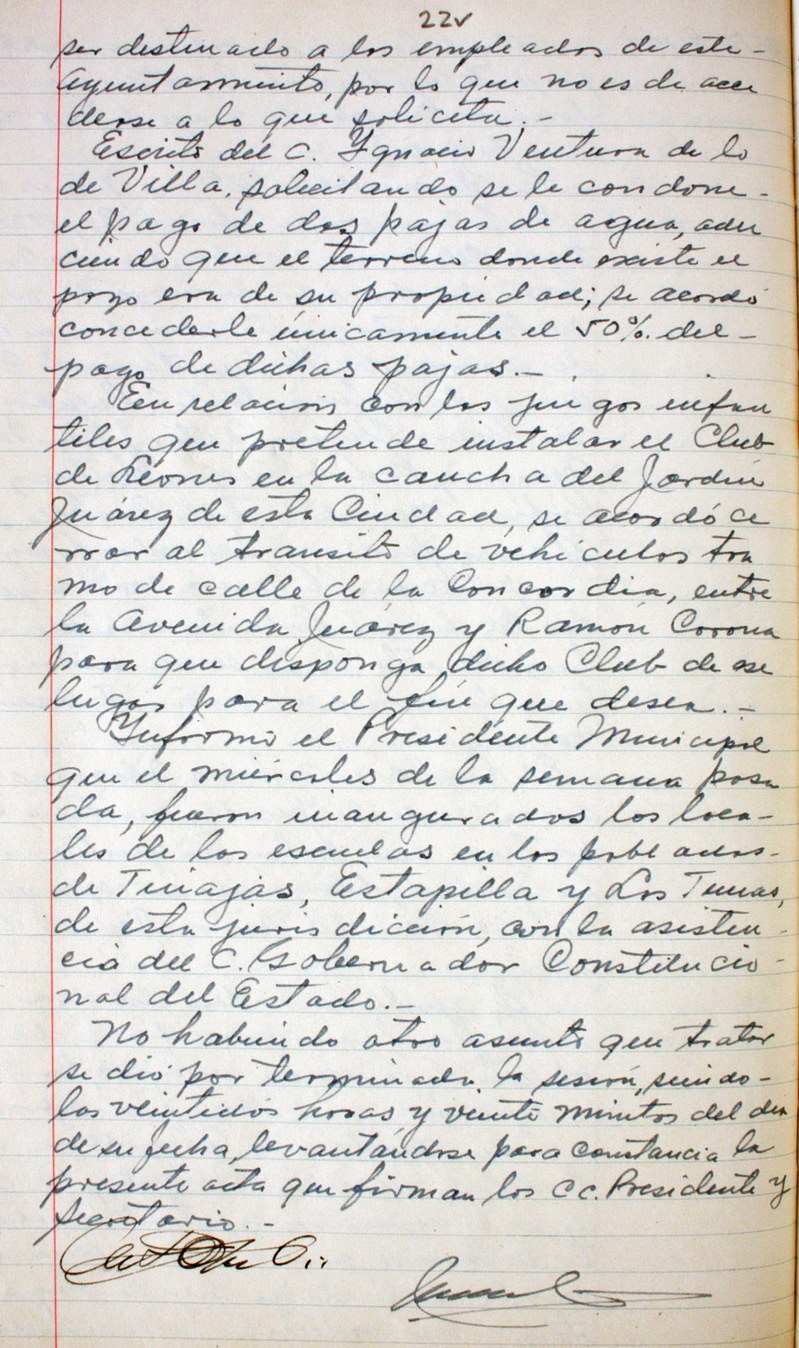 22v
ser destinado a los empleados de este-
Ayuntamiento, por lo que no es de acce
derse a lo que solicita.-
Escrito del C. Ygnacio Ventura de lo
de Villa, solicitando se le condone-
el pago de dos pajas de agua, adu
ciendo que el terreno donde existe el
pozo era de su propiedad; se acordó
concederle únicamente el 50% del-
pago de dichas pajas.-
En relación con los juegos infan
tiles que pretende instalar el Club
de Leones en la cancha del Jardín
Juárez de esta Ciudad, se acordó ce
rrar al transito de vehiculos tra
mo de calle de la Concordia, entre
la Avenida Juárez y Ramón Corona
para que disponga dicho Club de ese
lugar para el fin que desea.-
Ynformó el Presidente Municipal
que el miércoles de la semana pasa
da, fueron inaugurados los loca-
les de las escuelas en los poblados-
de Tinajas, Estapilla y Las Tunas,
de esta jurisdicción, con la asisten-
cia del C. Gobernador Constitucio-
nal del Estado.-
No habiendo otro asunto que tratar
se dió por terminada la sesión, siendo-
las veintidós horas y veinte minutos del día
de su fecha, levantándose para constancia la
presente acta que firman los CC. Presidente y
Secretario.-